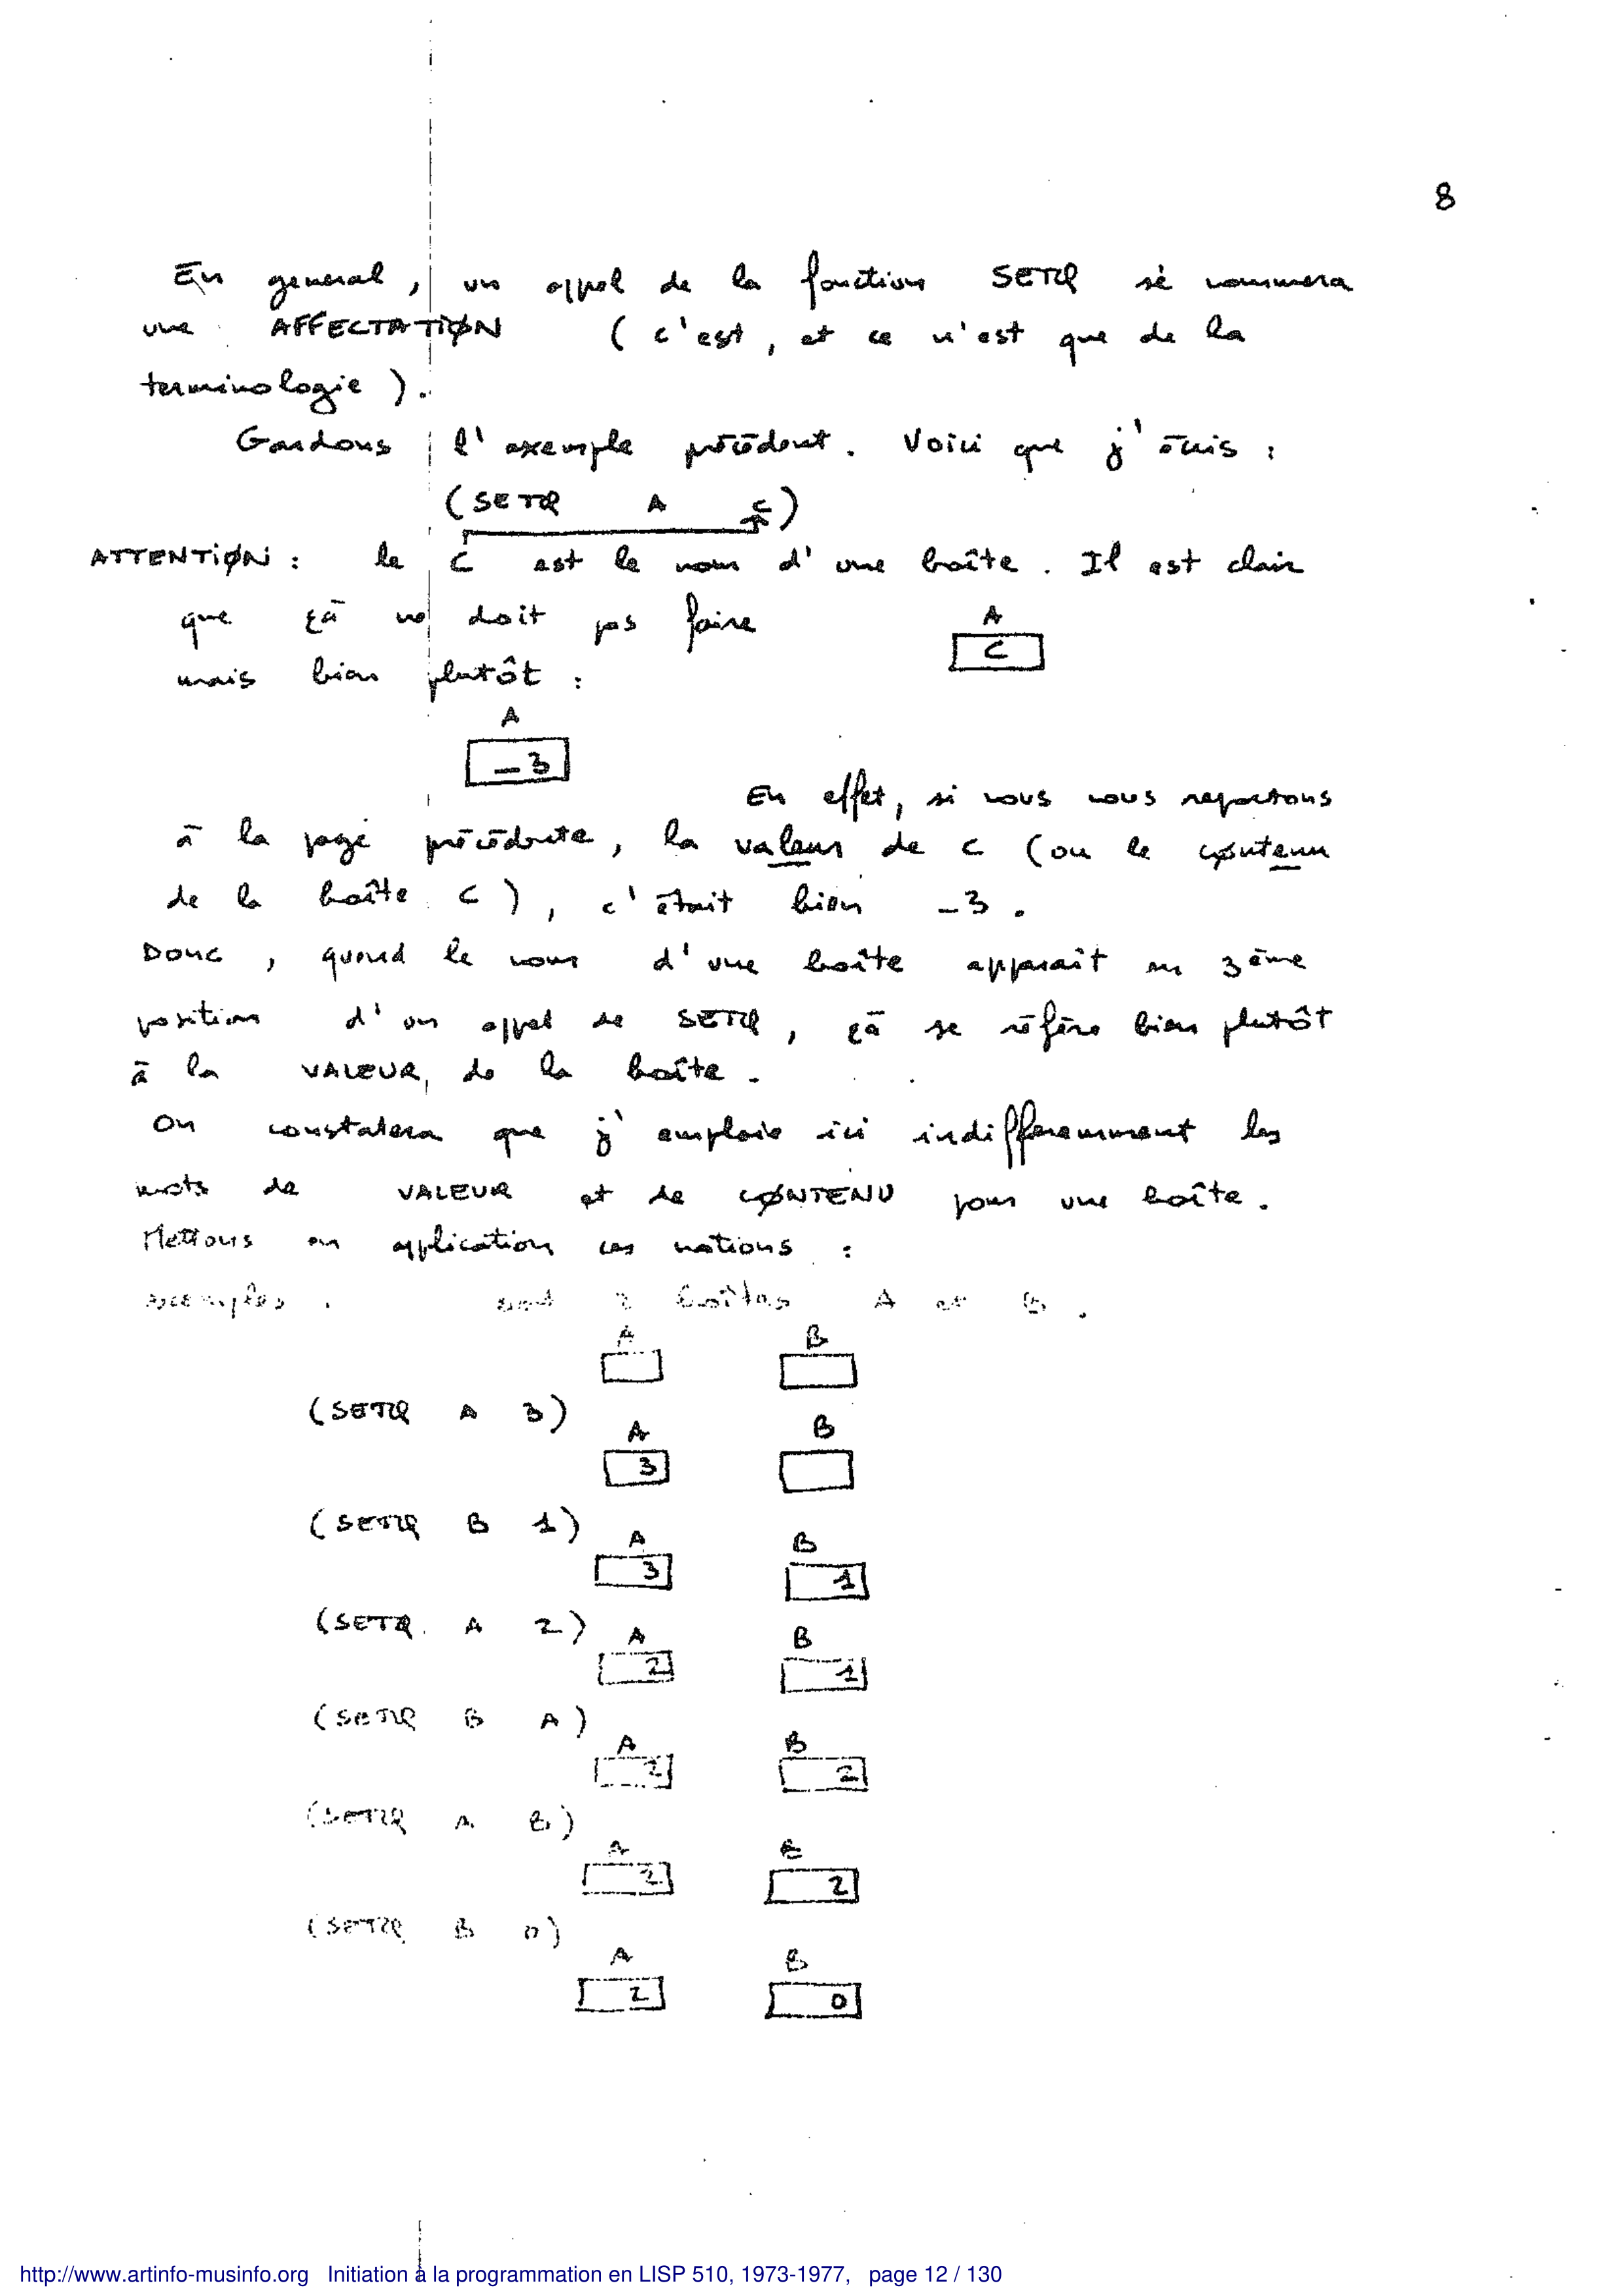 8
En general, un appel de la fonction SETQ se nommera
une AFFECTATIØN (c'est, et ce n'est que de la
terminologie).
Gardons l'exemple précédent. Voici que j'écris :
(SETQ A C)
ATTENTIØN : le C est le nom d'une boîte. Il est clair
que çà ne doit pas faire
A
C
mais bien plutôt :
A
-3
En effet, si nous nous reportons
à la page précédente, la valeur de C (ou le cøntenu
de la boîte C), c'était bien -3.
Donc, quand le nom d'une boîte apparait en 3ème
position d'un appel de SETQ, çà se réfère bien plutôt
à la VALEUR de la boîte.
On constatera que j'emploie ici indifferemment les
mots de VALEUR et de CØNTENU pour une boîte.
Mettons en application ces notions :
exemples : 2 boîtes A et B.
A B
(SETQ A 3)
A B
3
(SETQ B 1)
A B
3 1
(SETQ A 2)
A B
2 1
(SETQ B A)
A B
2 2
(SETQ A B)
A B
2 2
(SETQ B 0)
A B
2 0
http://www.artinfo-musinfo.org Initiation à la programmation en LISP 510, 1973-1977, page 12 / 130